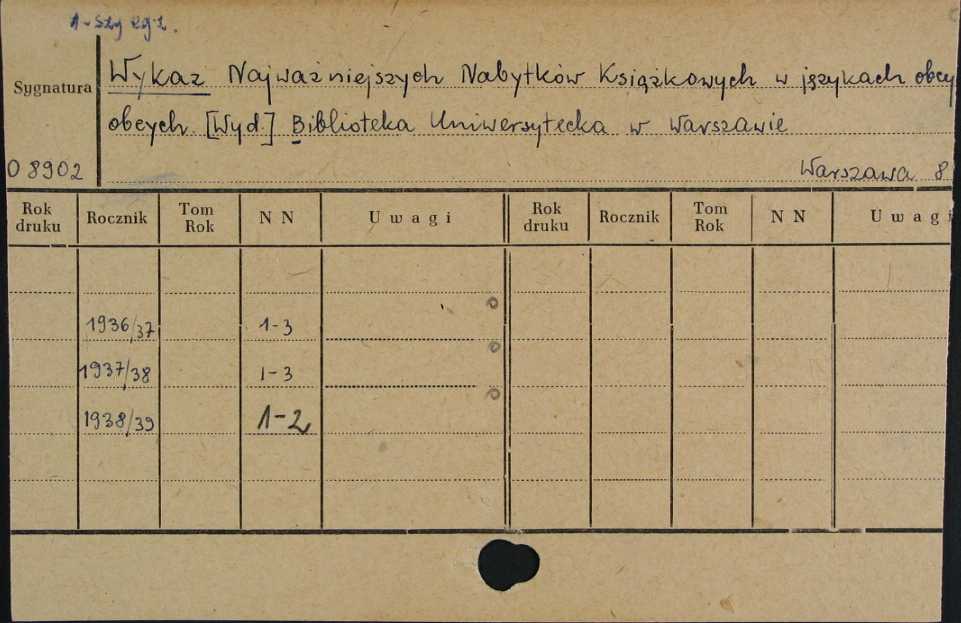 1-szy egz.
Sygnatura
Wykaz Najważniejszych Nabytków Książkowych w językach obcy
obcych. [Wyd.] Biblioteka Uniwersytecka w Warszawie
O 8902
Warszawa 8
Rok druku Rocznik Tom Rok N N Uwagi Rok druku Rocznik Tom Rok N N Uwagi
1936/37 1-3
1937/38 1-3
1938/39 1-2